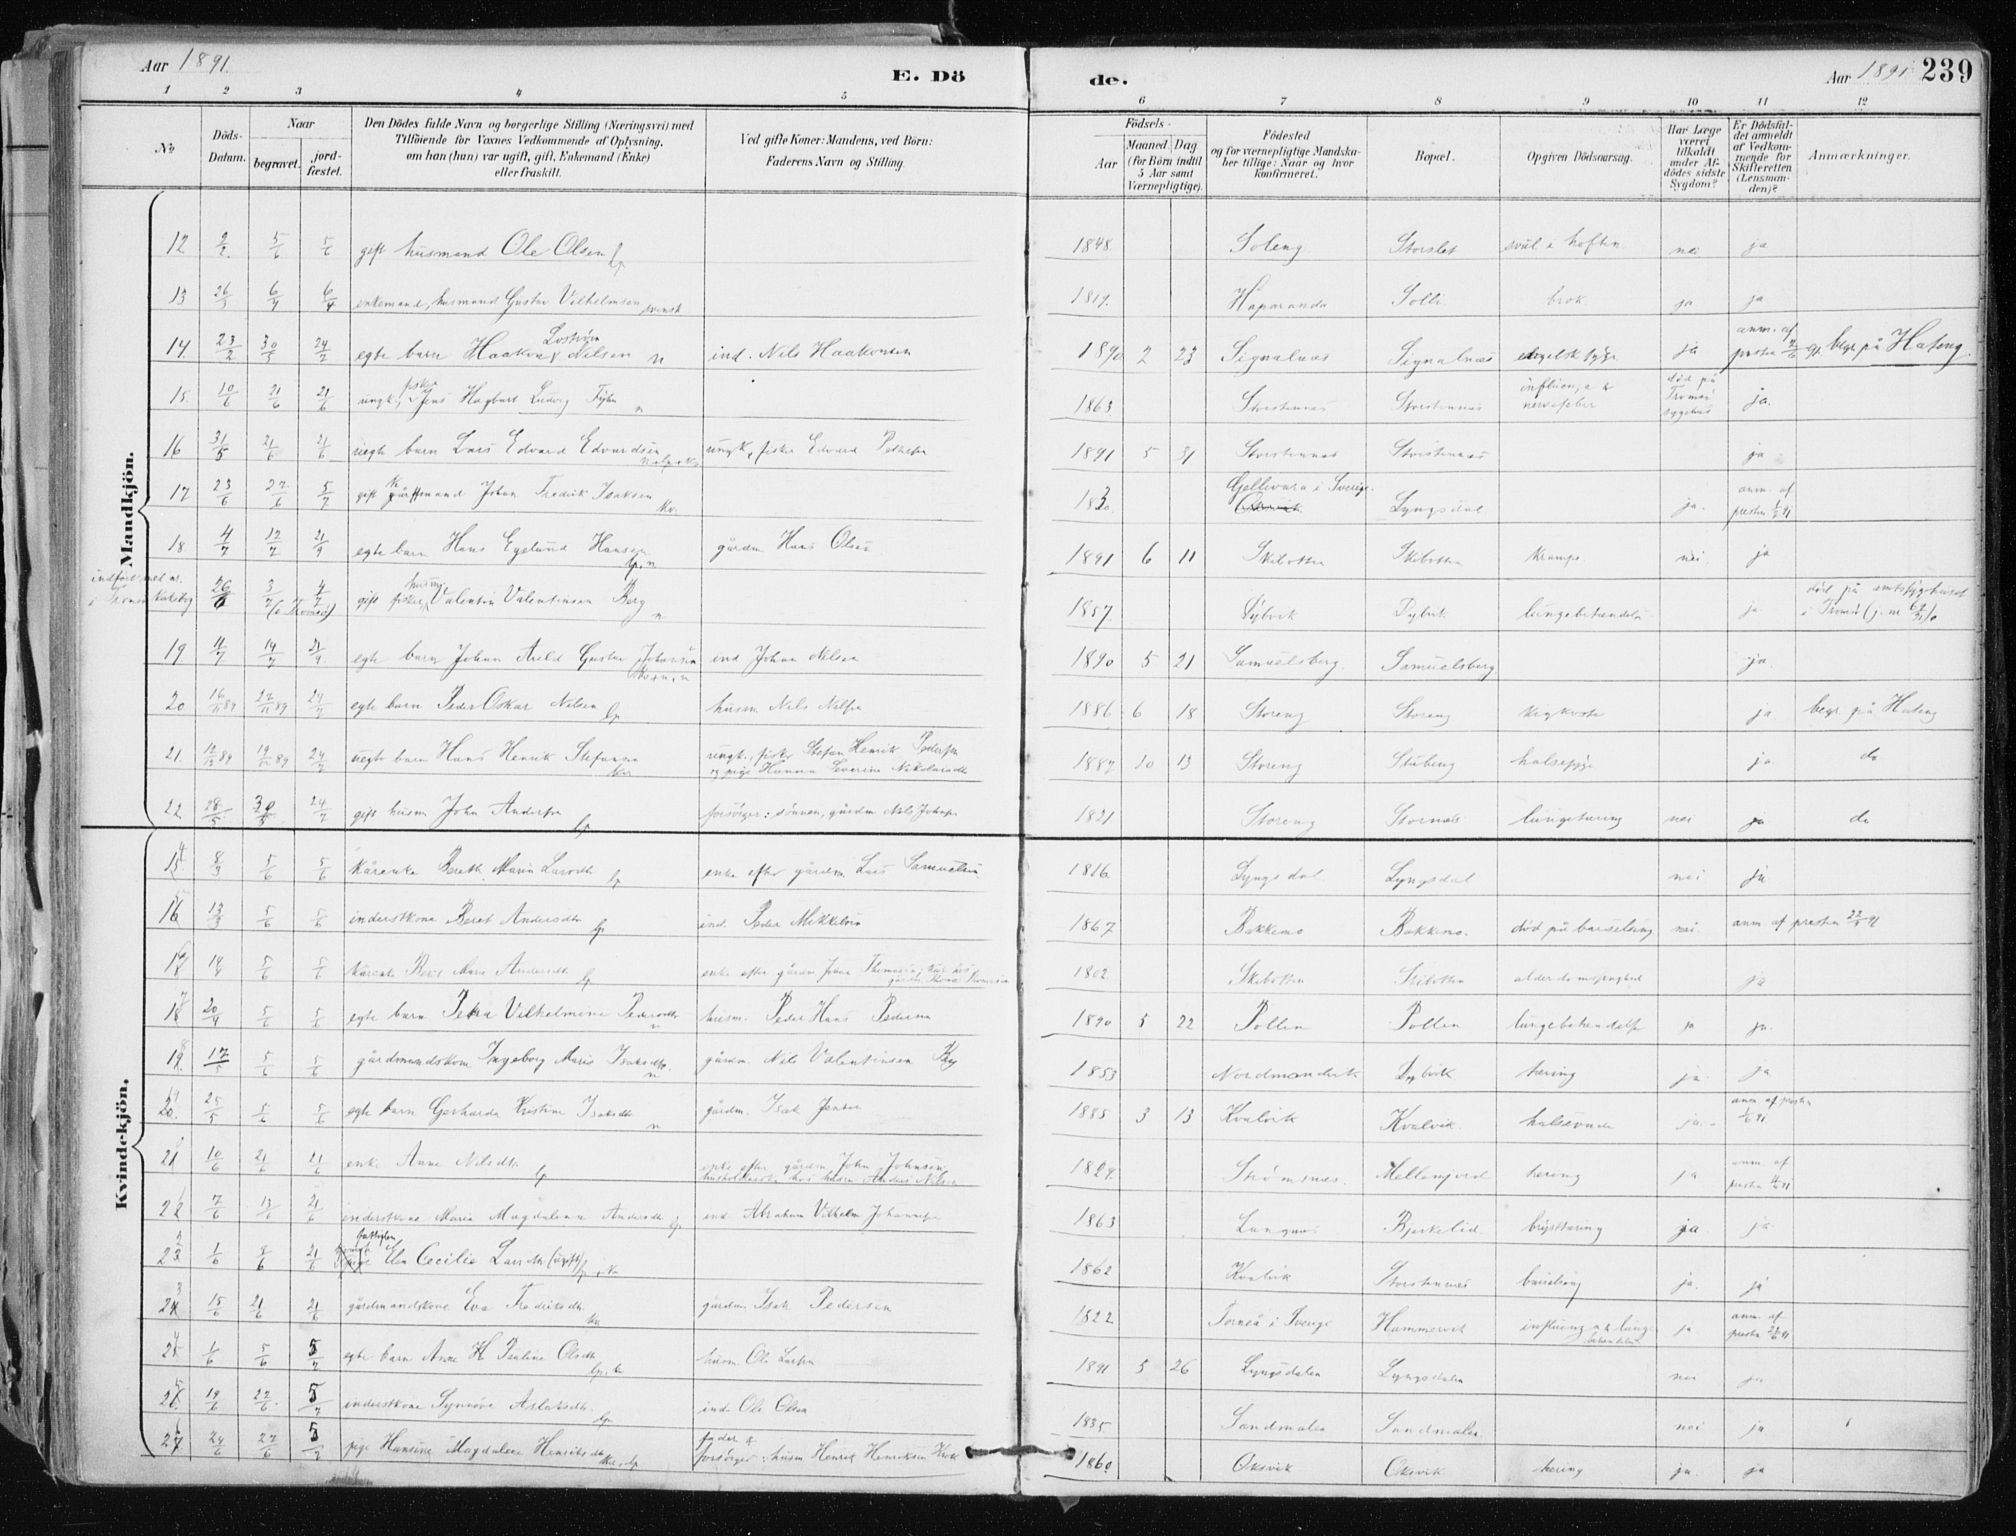 Aar 1891.
E. Dö
de.
Aar 1891
239
1 2 3 4 5 6 7 8 9 10 11 12
No
Döds-Datum.
Naar
begravet.
jord-fæstet.
Den Dödes fulde Navn og borgerlige Stilling (Næringsvei) med
Tilföiende för Voxnes Vedkommende af Oplysning,
om han (hun) var ugift, gift, Enkemand (Enke)
eller fraskilt.
Ved gifte Koner: Mandens, ved Börn:
Faderens Navn og Stilling.
Födsels-
Aar
Maaned Dag
(for Börn indtil
5 Aar samt
Værnepligtige).
Födested
og for værnepligtige Mandska-
ber tillige: Naar og hvor
konfirmeret.
Bopæl.
Opgiven Dödsaarsag.
Har Læge
været
tilkaldt
under Af-
dödes sidste
Sygdom?
Er Dödsfal-
det anmeldt
af Vedkom-
mende for
Skifteretten
(Lensman-
den)?
Anmærkninger.
Mandkjön.
12 5/6 5/6 gift husmand Ole Olsen lp 1848 Soleng Storslet svul i hoften nei ja
13 26/3 6/4 6/4 enkemand, husmand Gustav Vilhelmsen svensk 1819 Haparanda Solli brok ja ja
14 23/2 30/3 24/2 egte barn Haakon Nilsen n ind. Nils Haakonsen 1890 2 23 Signalnæs Signalnæs engelsk syge ja anm. af presten begr. på Hateng
15 10/6 21/6 21/6 ungk., fisker Jens Hagbart Ludvig n 1863 Storstennæs Storstennæs influenza & nervefeber død på Tromsø sygehus ja.
16 31/5 21/6 21/6 uegte barn Lars Edvard Edvardsen ungk., fisker Edvard Pedersen 1891 5 31 Storstennæs Storstennæs ja
17 23/6 27/6 5/7 gift gårdmand Johan Fredrik Isaksen kv. Gellivara i Sverige. Lyngsdal ja. anm. af presten
18 4/7 12/7 21/9 egte barn Hans Egelund Hansen lp, n gårdm Hans Olsen 1891 6 11 Skibotten Skibotten krampe nei ja
indført med nr. i Tromsø kirkebog 26/6 3/7 (i Tromsø) 4/7 gift fisker, husm. Valentin Valentinsen Berg n 1857 Dybvik Dybvik lungebetændelse ja død på amtssygehuset i Tromsø
19 4/7 14/7 21/9 egte barn Johan Arild Gustav Johansen ind Johan Nilsen 1890 5 21 Samuelsberg Samuelsberg ja.
20 16/11 89 27/11 89 24/7 egte barn Peder Oskar Nilsen lp husm Nils Nilsen 1886 6 18 Storeng Storeng ja begr på Hateng
21. 12/12 89 19/12 89 24/7 uegte barn Hans Henrik Stefansen kv ungk., fisker Stefan Henrik Pedersen
og pige Hanna Severine Nikolaisdtr 1887 10 13 Storeng Stubeng halssyge ja do
22 28/5 30/5 24/7 gift husm John Andersen lp forsörger: sönnen, gårdm Nils Johnsen 1821 Storeng Stornæs lungetæring nei ja do
Kvindekjön.
14 8/3 5/6 5/6 kårenke Bereth Maria Larsdtr lp enke efter gårdm. Lars Samuelsen 1816 Lyngsdal Lyngsdal nei ja
15 13/3 5/6 5/6 inderstkone Beret Andersdtr lp ind. Peder Mikkelsen 1867 Bakkemo Bakkemo. död på barselseng nei anm af presten
16 14/4 5/6 5/6 kårenke Berit Marie Andersdtr lp enke efter gårdm Johan Thomassen 1802 Skibotten Skibotten alderdomssvaghed ja
17 20/4 5/6 5/6 egte barn Petra Vilhelmine Pedersdtr n husm. Peder Hans Pedersen 1890 5 22 Pollen Pollen lungebetændelse ja ja.
18 17/5 5/6 5/6 gårdmandskone Ingeborg Marie Isaksdtr. n gårdm. Nils Valentinsen Berg 1853 Nordmandvik Dybvik tæring ja ja
19 25/5 5/6 5/6 egte barn Gerharda Kristine Isaksdtr n gårdm. Isak Jensen 1885 3 13 Kvalvik Kvalvik halsevunde ja anm af presten
20 10/6 21/6 21/6 enke Anne Nilsdtr. lp enke efter gårdm John Johnsen,
husholderske hos husm Anders Nilsen 1829. Strömsnes Mellemjord tæring ja anm. af presten
21 7/6 13/6 21/6 inderstkone Maria Magdalena Andersdtr lp ind Abraham Vilhelm Johannesen 1863 Langnes Bjerkelid brysttæring ja. ja
22 1/6 5/6 21/6 Elen Cecilie Larsdtr (ugift) 1862 Kvalvik Storstennæs barselseng ja. ja
23 15/6 21/6 21/6 gårdmandskone Eva Fredriksdtr. kv gårdm Isak Pedersen 1822 Torneå i Sverige Hammervik influenza & lungebetændelse ja anm. af presten
24 1/6 5/6 5/7 egte barn Anne H Pauline Olsdtr husm. Ole Larsen 1891 5 26 Lyngsdalen Lyngsdalen nei ja
25 19/6 27/6 5/7 inderstkone Synnöve Aslaksdtr. lp ind. Ole Olsen 1835 Sandmælen Sandmælen nei ja
26 24/6 27/6 5/7 pige Hansine Magdalene Henriksdtr kv., lp fader & forsörger: husm Henrik Henriksen Kvik 1860 Oksvik Oksvik tæring ja. ja